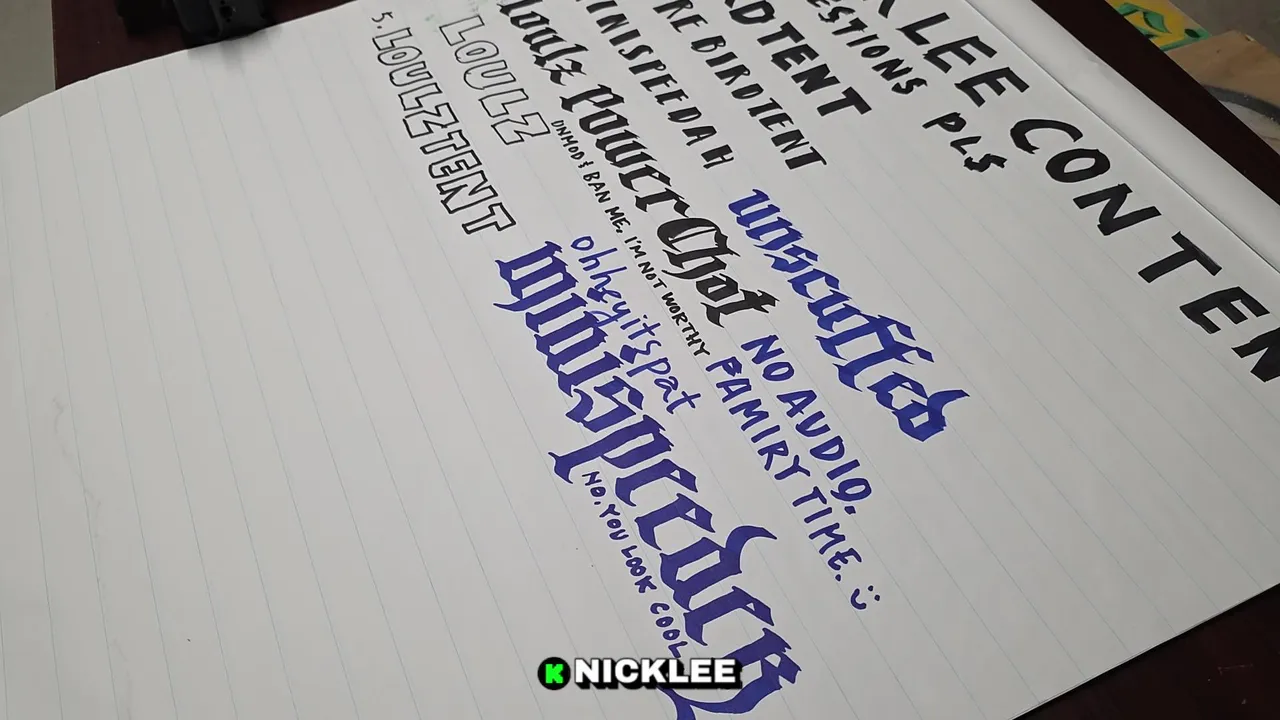 LEE CONTEN
ESTIONS PLS
RDTENT
RE BIRDTENT
INISPEEDAH
loulz PowerChat
UNMOD & BAN ME, I'M NOT WORTHY
LOULZ
5. LOULZTENT
unscuffed
NO AUDIO.
PAMIRY TIME. :)
ohheyitspat
minispeeder
NO, YOU LOOK COOL
K NICKLEE